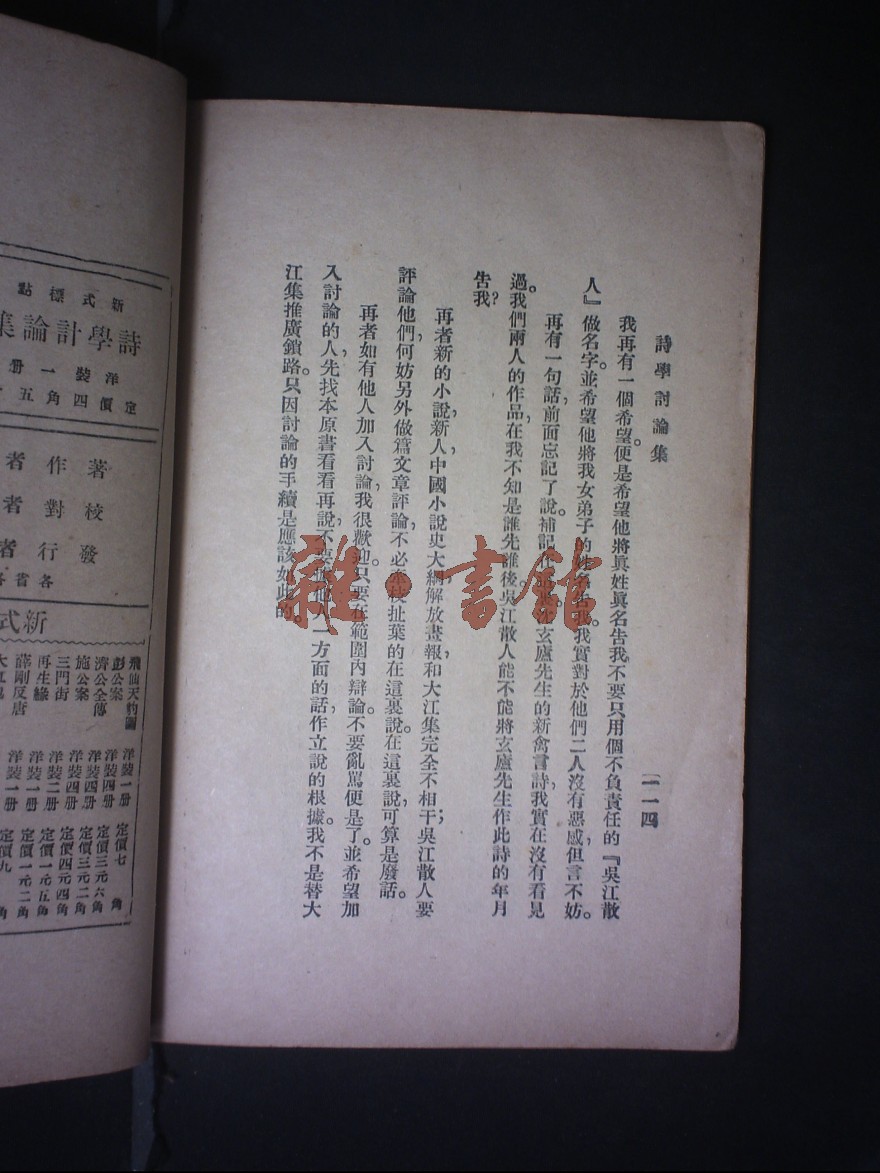 詩學討論集
一一四
我再有一個希望。便是希望他將眞姓眞名告我不要只用個不負責任的『吳江散
人』做名字。並希望他將我女弟子的姓名告我。我實對於他們二人沒有惡感，但言不妨。
再有一句話，前面忘記了說。補記在玄廬先生的新禽言詩，我實在沒有看見
過。我們兩人的作品，在我不知是誰先誰後。吳江散人能不能將玄廬先生作此詩的年月
告我？
再者新的小說，新人，中國小說史大綱，解放畫報和大江集完全不相干；吳江散人要
評論他們，何妨另外做篇文章評論，不必牽枝扯葉的在這裏說。在這裏說，可算是廢話。
再者如有他人加入討論，我很歡迎。只要在範圍內辯論。不要亂駡便是了。並希望加
入討論的人，先找本原書看看再說，不要他人一方面的話，作立說的根據。我不是替大
江集推廣銷路。只因討論的手續是應該如此的。
新式標點
詩學討論集
洋裝一册
定價四角五
著作者
校對者
發行者
各省各
新式
飛仙天豹圖 洋裝一册 定價七角
彭公案 洋裝四册 定價三元六角
濟公全傳 洋裝四册 定價三元二角
施公案 洋裝四册 定價四元四角
三門街 洋裝二册 定價一元二角
再生緣 洋裝一册 定價一元五角
薛剛反唐 洋裝一册 定價九角
雜·書館